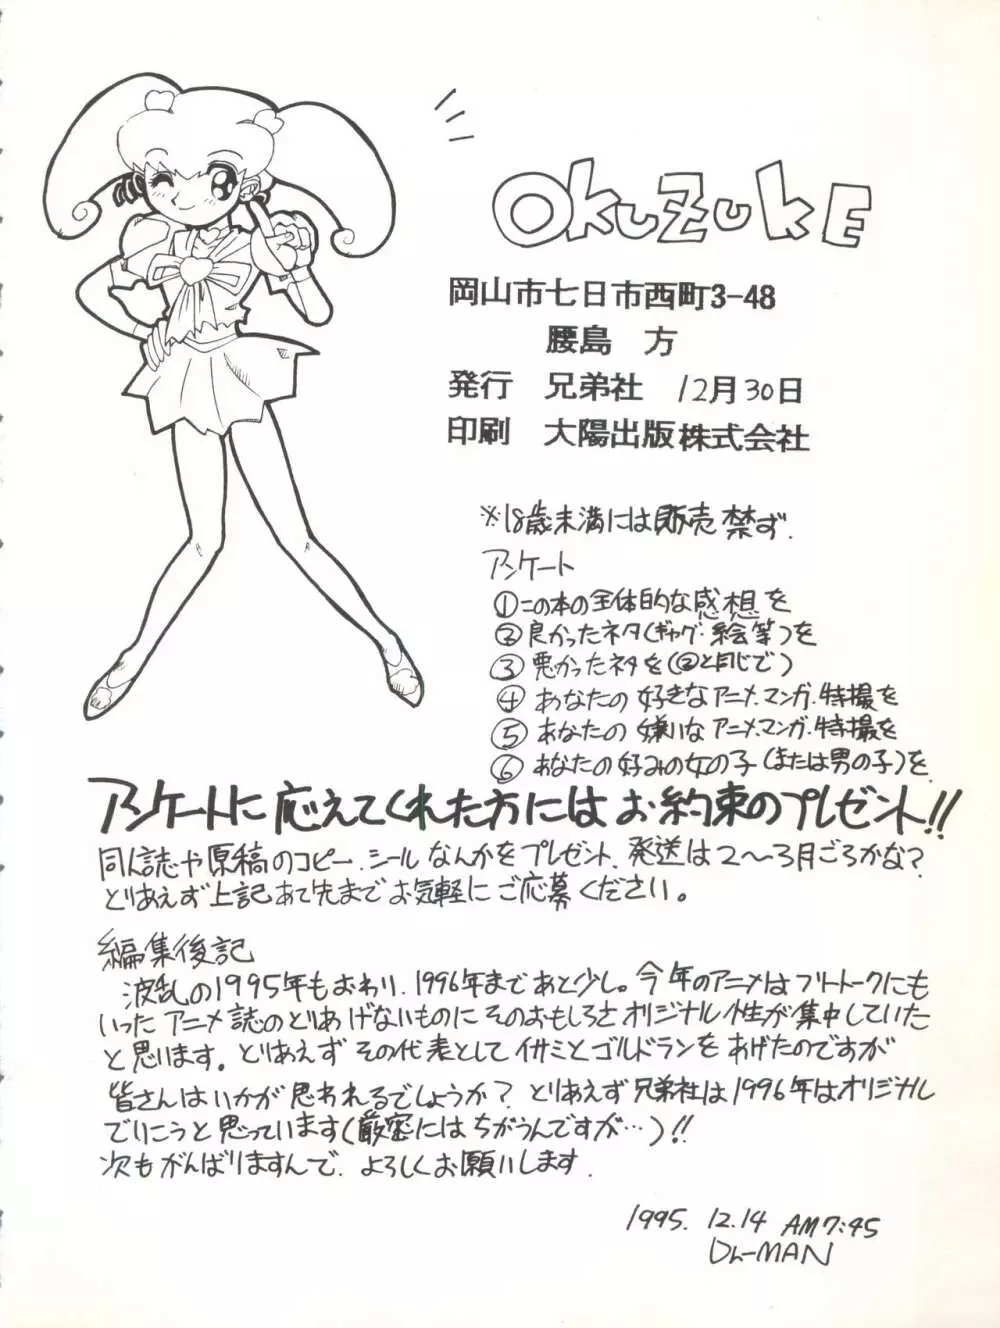 OKUZUKE
岡山市七日市西町3-48
腰島 方
発行 兄弟社 12月30日
印刷 大陽出版株式会社
※18歳未満には販売禁ず.
アンケート
①この本の全体的な感想を
②良かったネタ(ギャグ・絵等)を
③悪かったネタを(②と同じで)
④あなたの好きなアニメ、マンガ、特撮を
⑤あなたの嫌いなアニメ、マンガ、特撮を
⑥あなたの好みの女の子(または男の子)を.
アンケートに応えてくれた方にはお約束のプレゼント!!
同人誌や原稿のコピー、シールなんかをプレゼント、発送は2〜3月ごろかな?
とりあえず上記あて先までお気軽にご応募ください。
編集後記
波乱の1995年もおわり、1996年まであと少し。今年のアニメはフリートークにも
いったアニメ誌のとりあげないものにそのおもしろさオリジナル性が集中していた
と思います。とりあえずその代表としてイサミとゴルドランをあげたのですが
皆さんはいかが思われるでしょうか?とりあえず兄弟社は1996年はオリジナル
でいこうと思っています(厳密にはちがうんですが…)!!
次もがんばりますんで、よろしくお願いします.
1995. 12.14 AM7:45
Dr-MAN